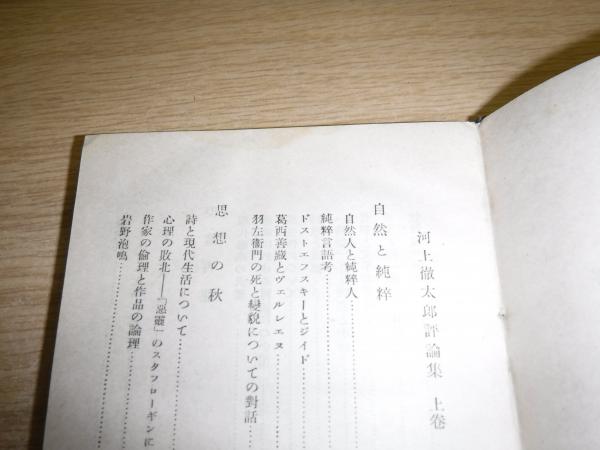 河上徹太郎評論集　上卷
自然と純粹
自然人と純粹人‥‥‥‥‥‥
純粹言語考‥‥‥‥‥‥‥‥
ドストエフスキーとジイド‥‥‥
葛西善藏とヴェルレエヌ‥‥‥
羽左衞門の死と變貌についての對話
思想の秋
詩と現代生活について‥‥‥‥
心理の敗北――『惡靈』のスタフローギンに
作家の倫理と作品の論理‥‥‥
岩野泡鳴‥‥‥‥‥‥‥‥‥